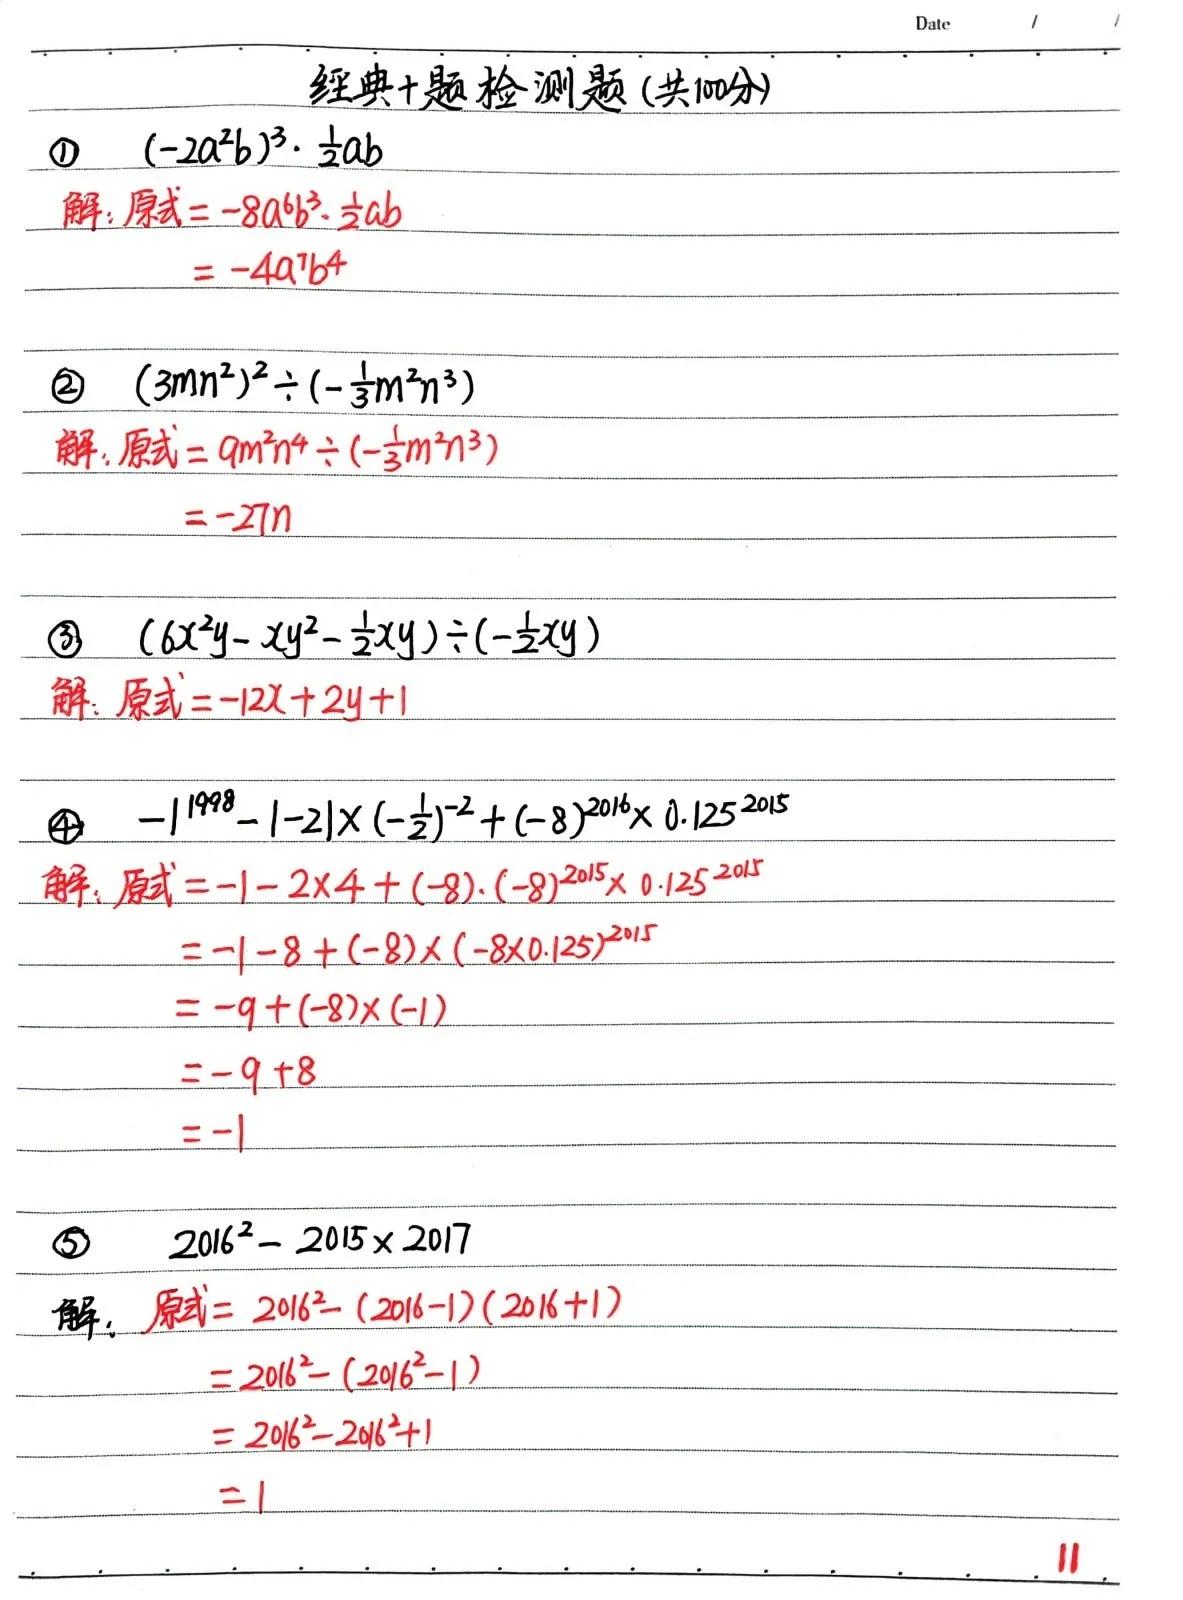 Date / /
经典十题检测题(共100分)
① (-2a²b)³·½ab
解:原式=-8a⁶b³·½ab
=-4a⁷b⁴
② (3mn²)²÷(-⅓m²n³)
解:原式=9m²n⁴÷(-⅓m²n³)
=-27n
③ (6x²y-xy²-½xy)÷(-½xy)
解:原式=-12x+2y+1
④ -1¹⁹⁹⁸-|-2|×(-½)⁻²+(-8)²⁰¹⁶×0.125²⁰¹⁵
解:原式=-1-2×4+(-8)·(-8)²⁰¹⁵×0.125²⁰¹⁵
=-1-8+(-8)×(-8×0.125)²⁰¹⁵
=-9+(-8)×(-1)
=-9+8
=-1
⑤ 2016²-2015×2017
解:原式=2016²-(2016-1)(2016+1)
=2016²-(2016²-1)
=2016²-2016²+1
=1
11